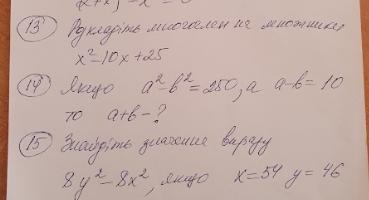 (13) Розкладіть многочлен на множники
x²-10x+25
(14) Якщо a²-b²=250, а a-b=10
то a+b-?
(15) Знайдіть значення виразу
8y²-8x², якщо x=54 y=46